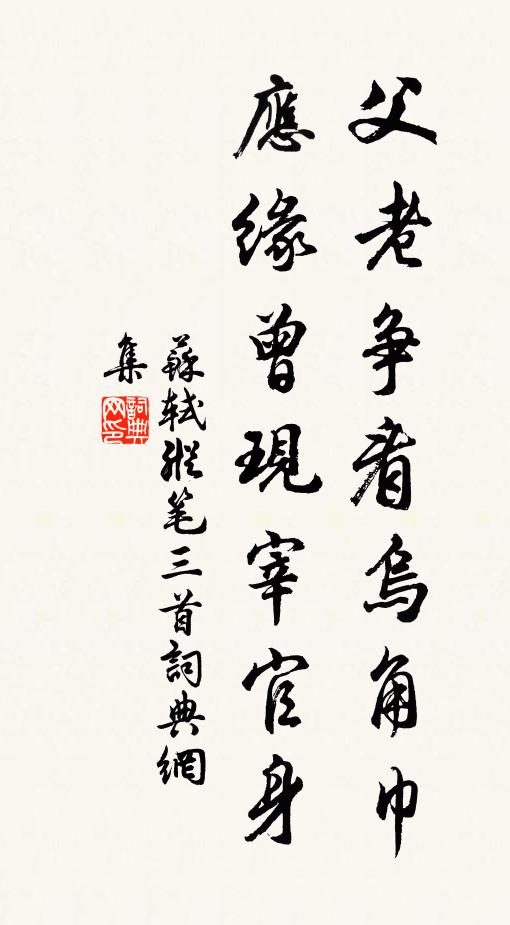 父老争看烏角巾
應緣曾現宰官身
蘇軾縱笔三首詞典網
集
詞典网印